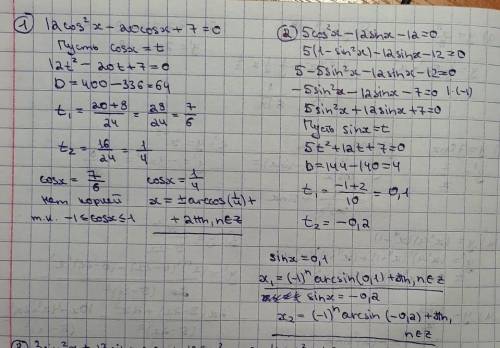 ① 12cos²x - 20cosx + 7 = 0
Пусть cosx = t
12t² - 20t + 7 = 0
D = 400 - 336 = 64
t₁ = (20+8)/24 = 28/24 = 7/6
t₂ = 16/24 = 1/4
cosx = 7/6   cosx = 1/4
нет корней   x = ±arccos(1/4) +
т.к. -1 ≤ cosx ≤ 1   + 2πn, n∈z
② 5cos²x - 12sinx - 12 = 0
5(1 - sin²x) - 12sinx - 12 = 0
5 - 5sin²x - 12sinx - 12 = 0
-5sin²x - 12sinx - 7 = 0 |·(-1)
5sin²x + 12sinx + 7 = 0
Пусть sinx = t
5t² + 12t + 7 = 0
D = 144 - 140 = 4
t₁ = (-1+2)/10 = 0,1
t₂ = -0,2
sinx = 0,1
x₁ = (-1)ⁿ arcsin(0,1) + πn, n∈z
sinx = -0,2
x₂ = (-1)ⁿ arcsin(-0,2) + πn,
n∈z